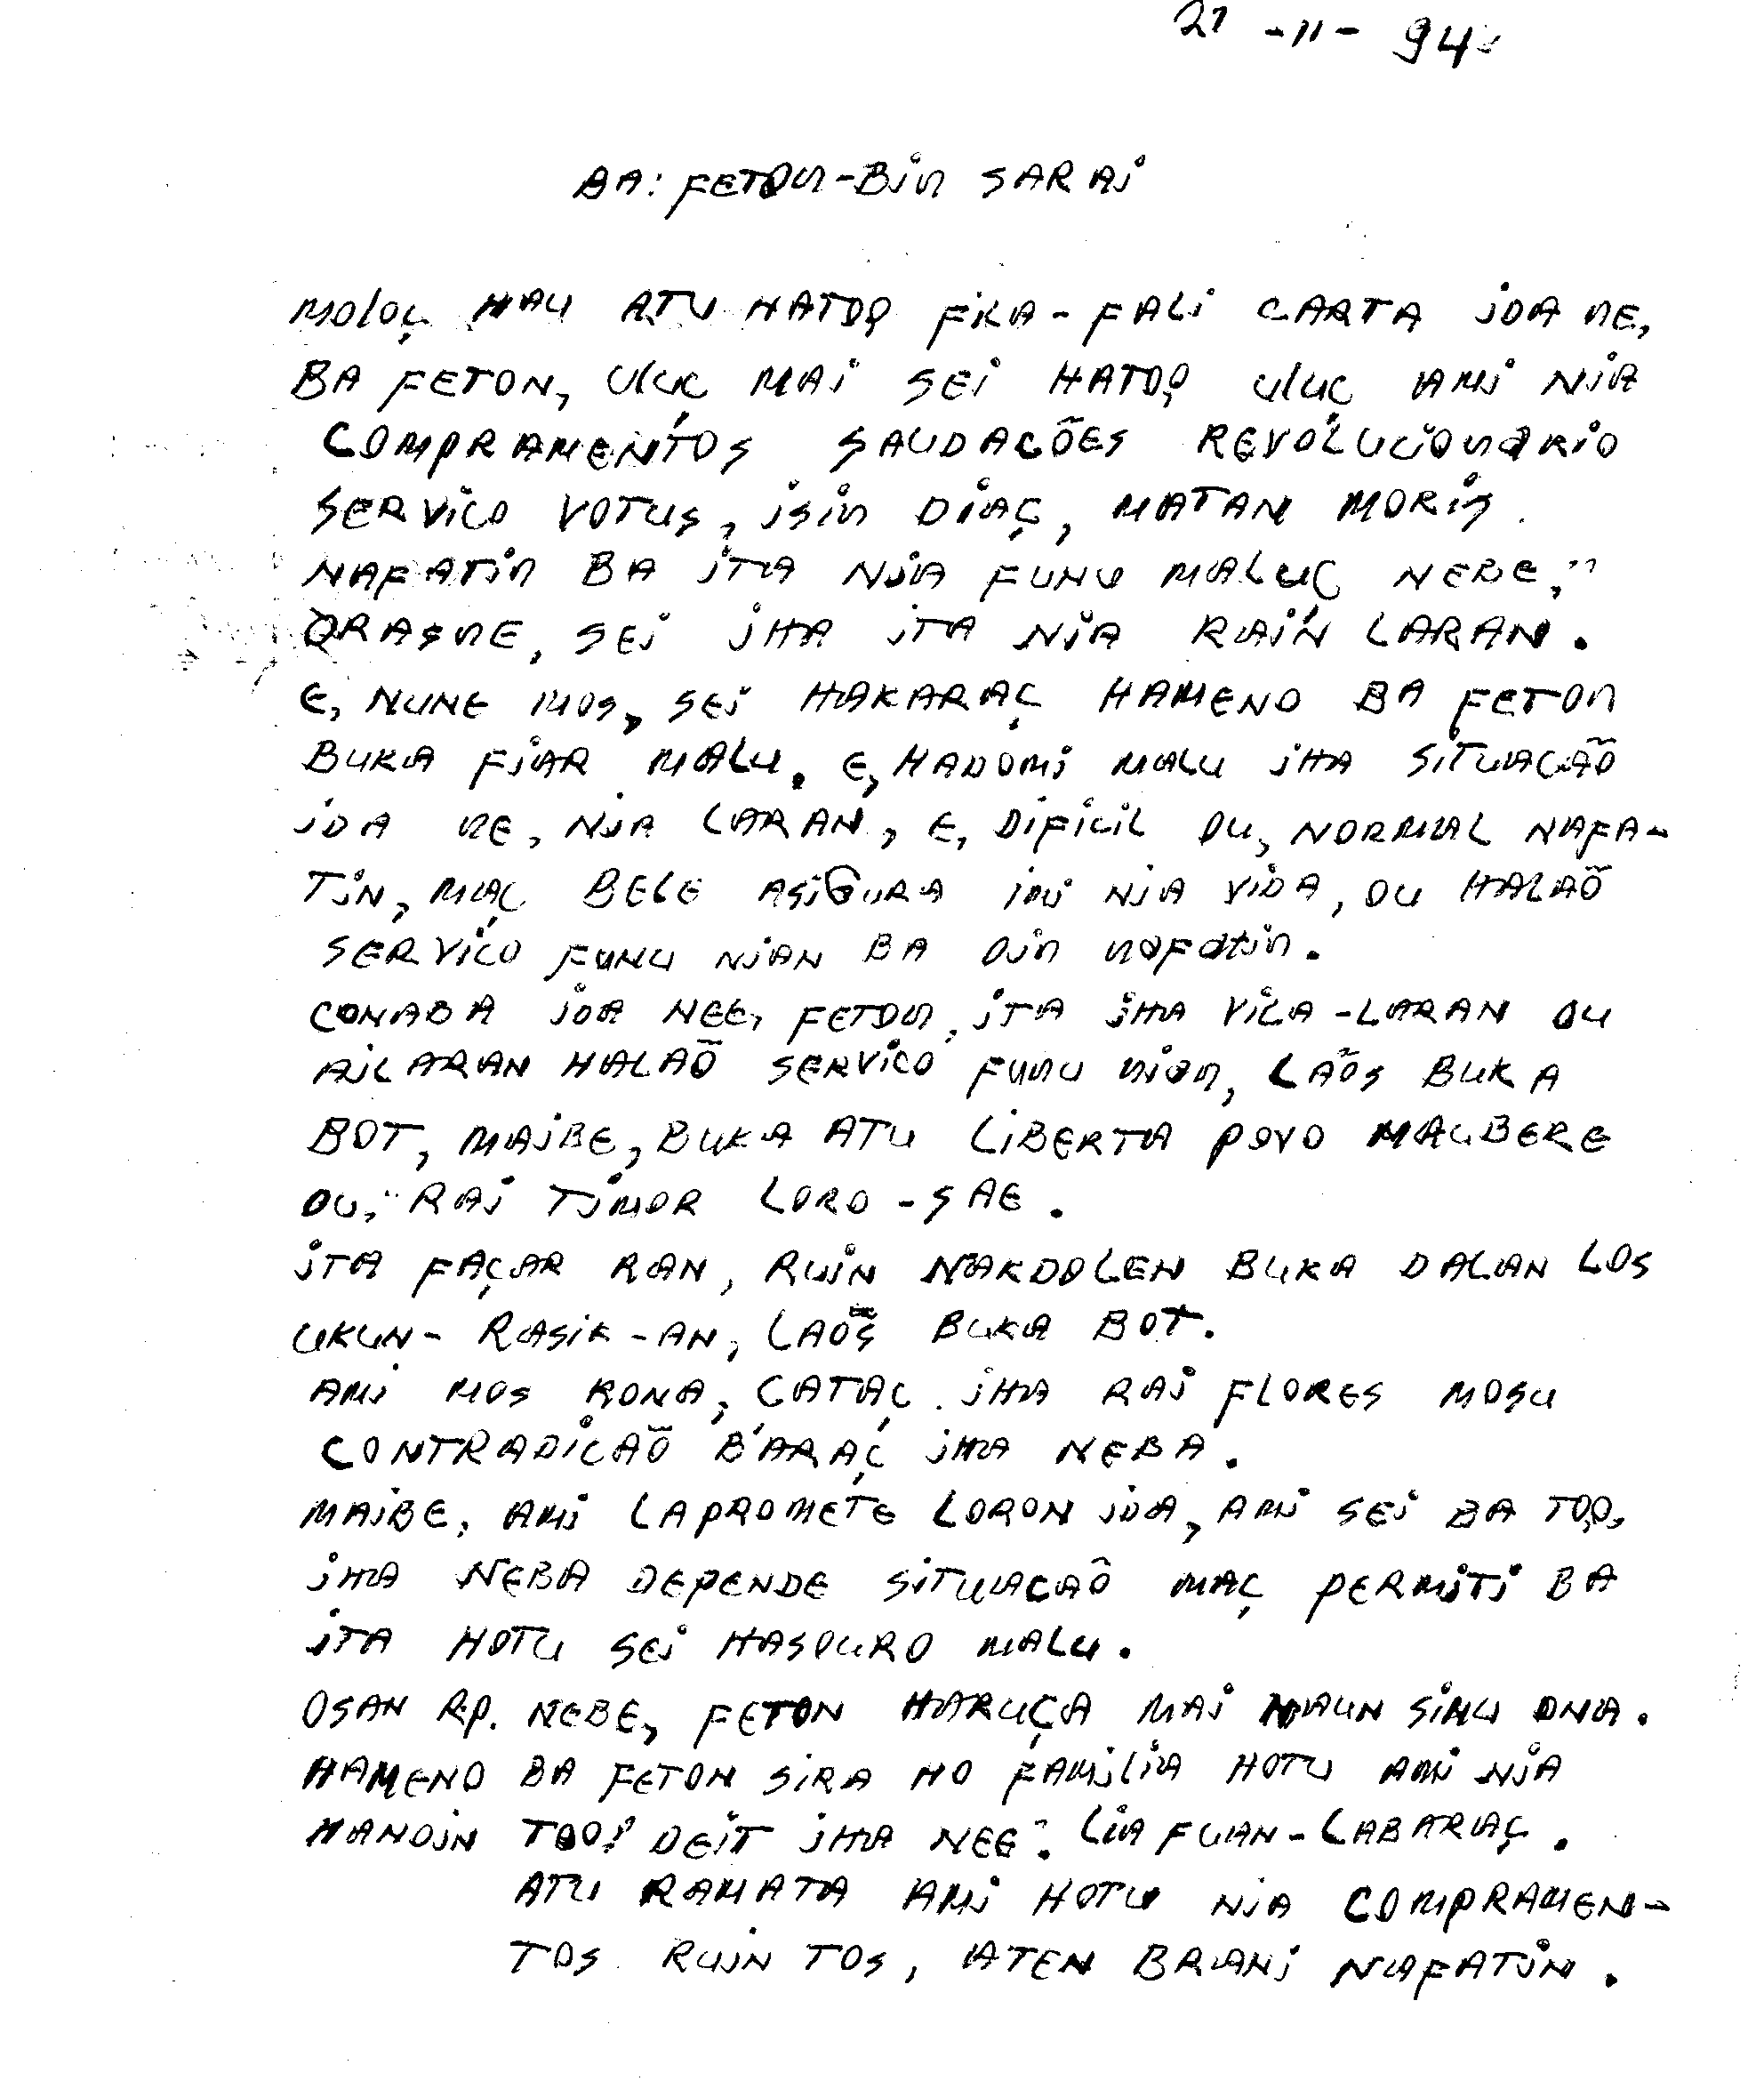 21 -11- 94
BA: FETON-BIN SARAI
MOLOÇ HAU ATU HATOO̧ FILA-FALI CARTA IDA NE,
BA FETON, ULUC MAI SEI HATOO̧ ULUÇ AMI NIA
COMPRAMENTOS SAUDACÕES REVOLUCIONARIO
SERVICO VOTUS, ISIN DIAÇ, MATAN MORIS.
NAFATIN BA ITA NIA FUNU MALUÇ NEBE,"
ORASNE, SEI IHA ITA NIA RAIN LARAN.
E, NUNE MOS, SEI HAKARAÇ HAMENO BA FETON
BUKA FIAR MALU. E, HADOMI MALU IHA SITUACÃO
IDA NE, NIA LARAN, E, DIFICIL OU, NORMAL NAFA-
TIN, MAÇ BELE ASIGURA IMI NIA VIDA, OU HALAÕ
SERVICO FUNU NIAN BA OIN NAFATIN.
CONABA IDA NEE, FETON, ITA IHA VILA-LARAN OU
AILARAN HALAÕ SERVICO FUNU NIAN, LAÕS BUKA
BOT, MAIBE, BUKA ATU LIBERTA POVO MAUBERE
OU," RAI TIMOR LORO-SAE.
ITA FAÇAR RAN, RUIN NAKDOLEN BUKA DALAN LOS
UKUN-RASIK-AN, LAÕS BUKA BOT.
AMI MOS RONA, CATAÇ IHA RAI FLORES MOSU
CONTRADICAÕ BARAÇ IHA NEBA.
MAIBE, AMI LA PROMETE LORON IDA, AMI SEI BA TOO̧,
IHA NEBA DEPENDE SITUACAÕ MAÇ PERMITI BA
ITA HOTU SEI HASOURO MALU.
OSAN RP. NEBE, FETON HARUÇA MAI MAUN SIMU ONA.
HAMENO BA FETON SIRA HO FAMILIA HOTU AMI NIA
HANOIN TOO! DEIT IHA NEE. LIA FUAN-LABARAÇ.
ATU RAMATA AMI HOTU NIA COMPRAMEN-
TOS RUIN TOS, ATEN BRANI NAFATIN.